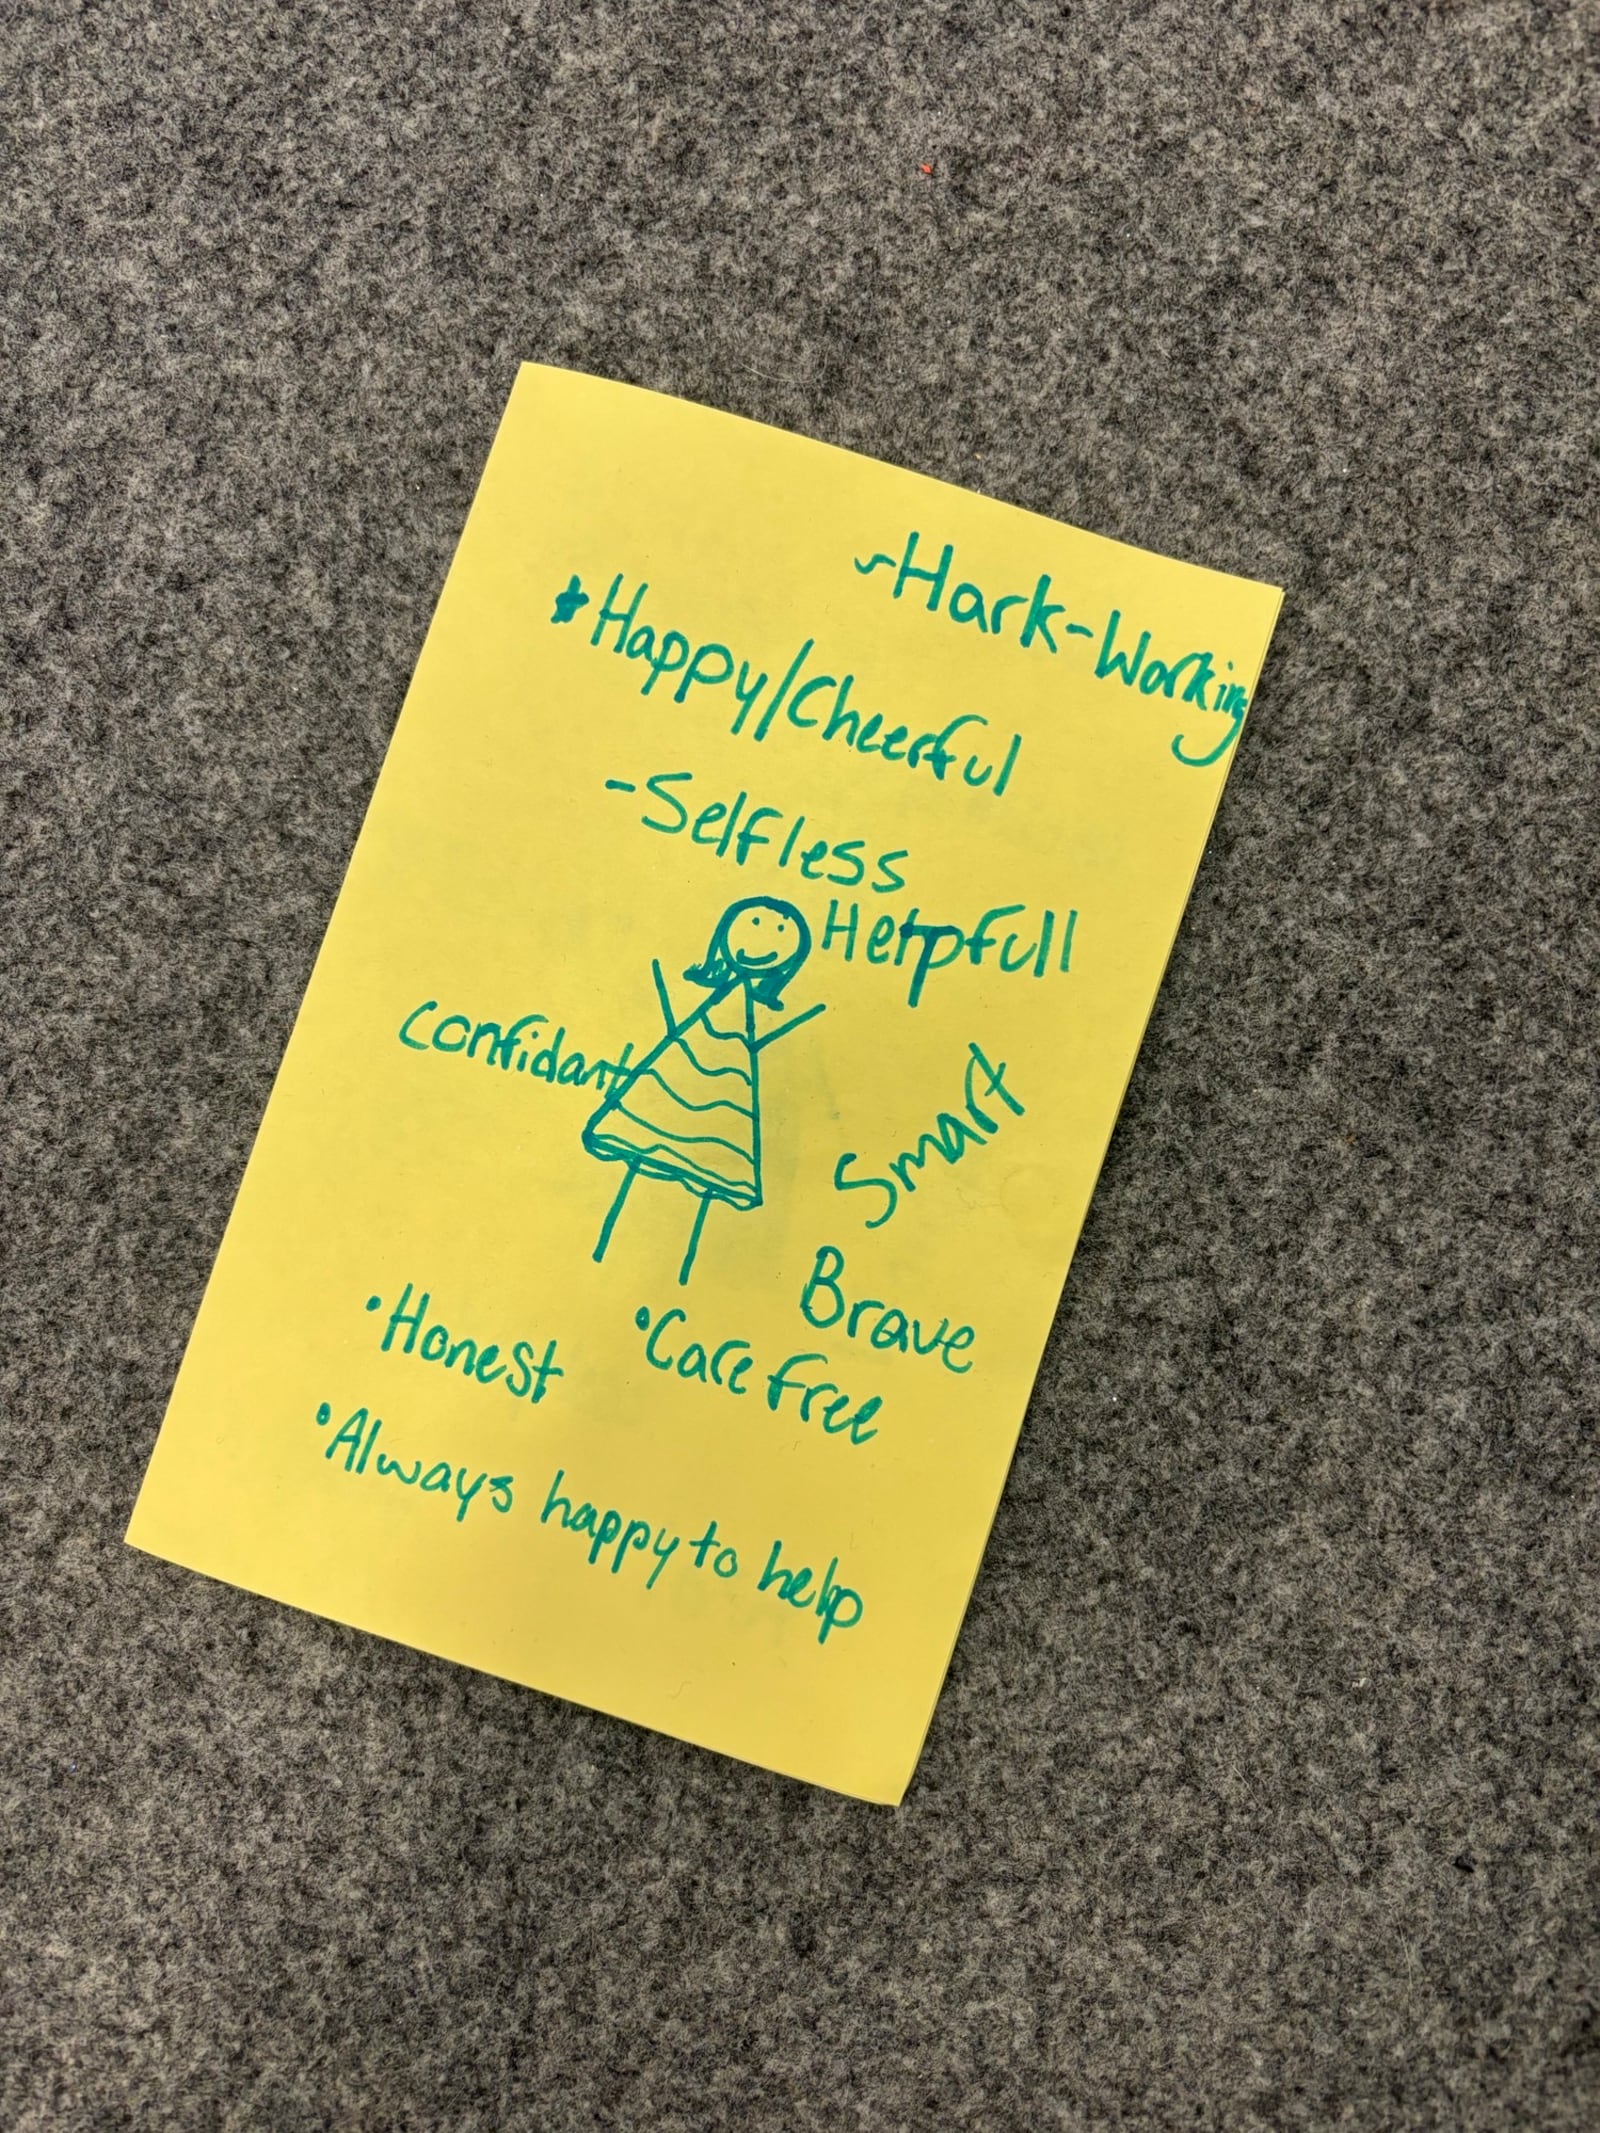 ~Hark-Working
*Happy/Cheerful
-Selfless
Helpfull
confidant
Smart
Brave
•Honest
•Care free
•Always happy to help